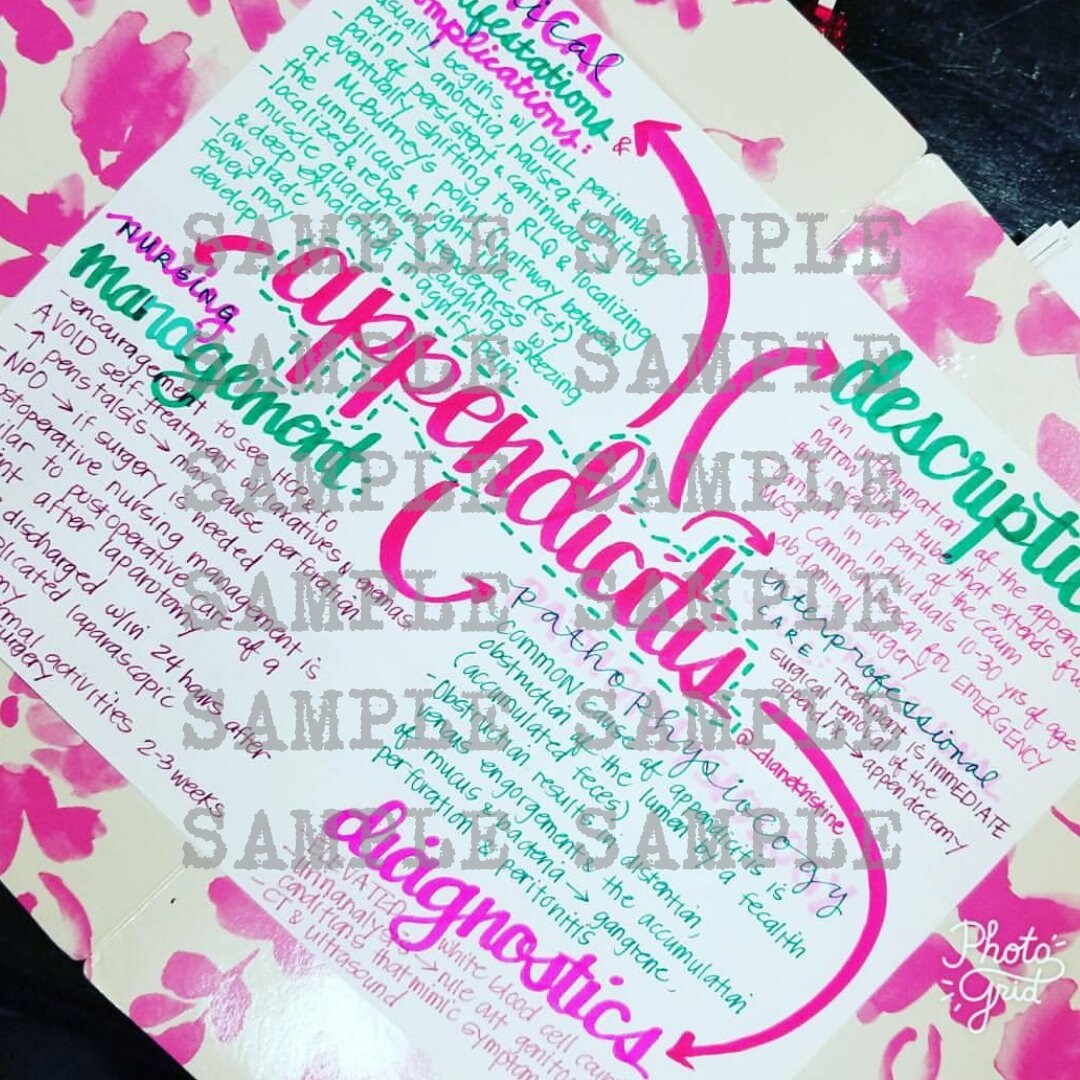 CLINICAL
manifestations &
complications:
-usually begins w/ DULL periumbilical
pain → anorexia, nausea & vomiting
-pain at persistent & continuous →
eventually shifting to RLQ & localizing
at McBurney's point (halfway between
the umbilicus & right iliac crest)
-localized & rebound tenderness w/
muscle guarding → coughing, sneezing
& deep exhalation magnify pain
-low-grade
fever may
develop
NURSING
management:
-encouragement to see HCP & to
AVOID self-treatment w/ laxatives & enemas
-↑ peristalsis → may cause perforation
-NPO → if surgery is needed
postoperative nursing management is
similar to postoperative care of a
after laparotomy
discharged w/in 24 hours after
laparascopic
normal activities 2-3 weeks
surgery
appendicitis
description
-an inflammation of the appendix
narrow blind tube that extends from
the inferior part of the cecum
-common in individuals 10-30 yrs of age
-Most common reason for EMERGENCY
abdominal surgery
interprofessional
CARE: Treatment is IMMEDIATE
surgical removal of the
appendix → appendectomy
@_dianekristine
Pathophysiology
COMMON cause of appendicitis is
obstruction of the lumen by a fecalith
(accumulated feces)
-Obstruction results in distention,
venous engorgement & the accumulation
of mucus & bacteria → gangrene,
perforation & peritonitis
diagnostics
-ELEVATED white blood cell count
-urinanalysis → rule out
conditions that mimic symptoms
-CT & ultrasound
Photo
Grid
SAMPLE SAMPLE
SAMPLE SAMPLE
SAMPLE SAMPLE
SAMPLE SAMPLE
SAMPLE SAMPLE
SAMPLE SAMPLE
SAMPLE SAMPLE
SAMPLE SAMPLE